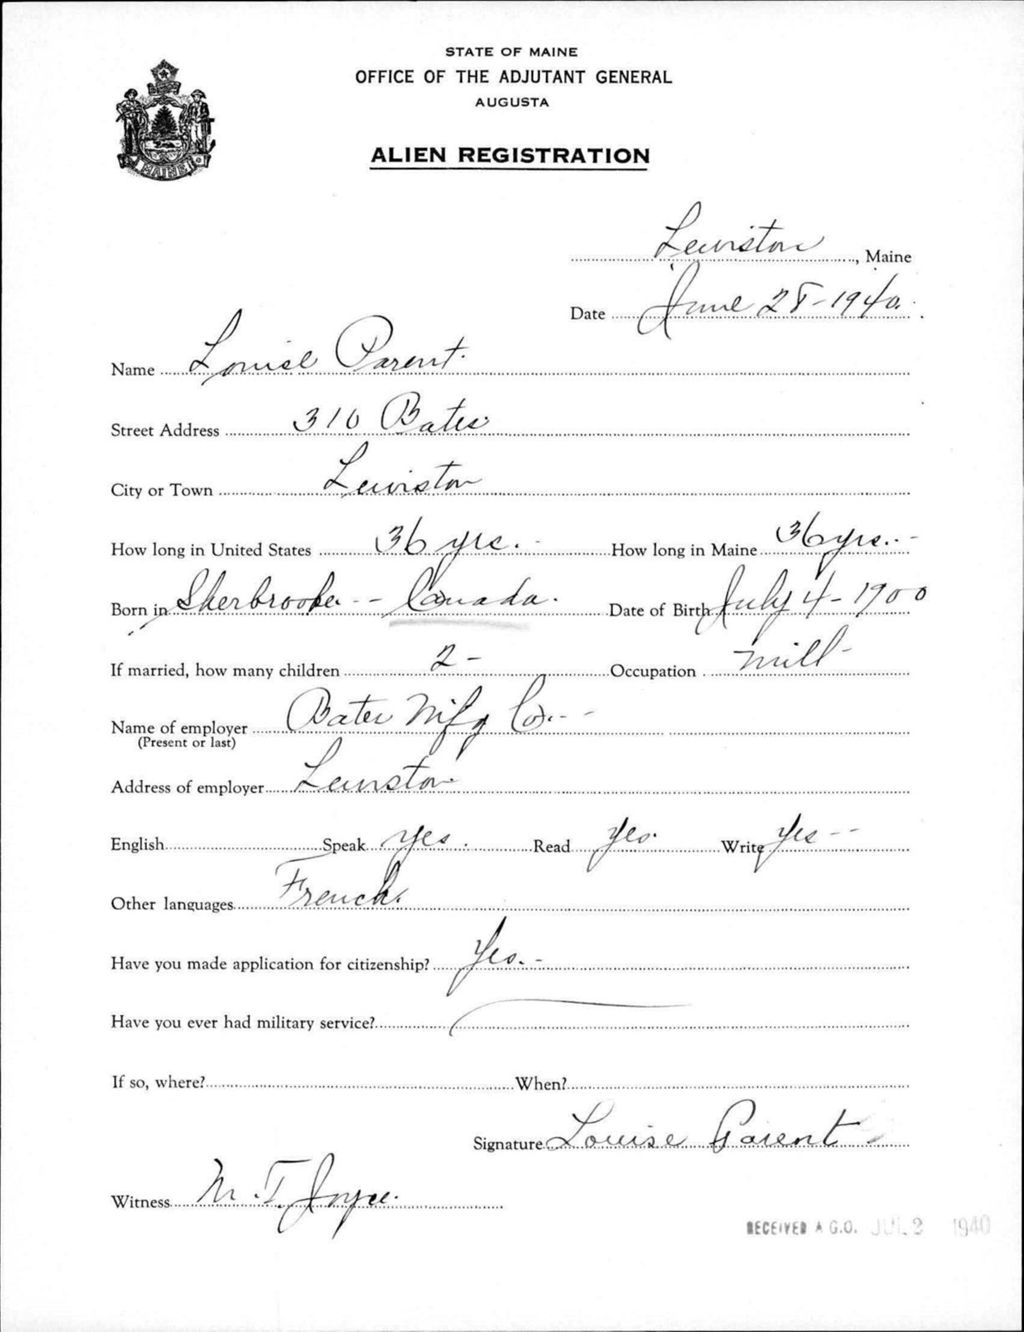 STATE OF MAINE
OFFICE OF THE ADJUTANT GENERAL
AUGUSTA
ALIEN REGISTRATION
MAINE
Lewiston, Maine
Date June 28-1940.
Name Louise Parent.
Street Address 310 Bates
City or Town Lewiston
How long in United States 36 yrs. How long in Maine 36 yrs.
Born in Sherbrooke - Canada. Date of Birth July 4-1900
If married, how many children 2 - Occupation Mill
Name of employer Bates Mfg Co.
(Present or last)
Address of employer Lewiston
English Speak yes. Read Yes. Write Yes
Other languages French.
Have you made application for citizenship? Yes.
Have you ever had military service?
If so, where? When?
Signature Louise Parent
Witness M. T. Joyce.
RECEIVED A.G.O. JUL 2 1940